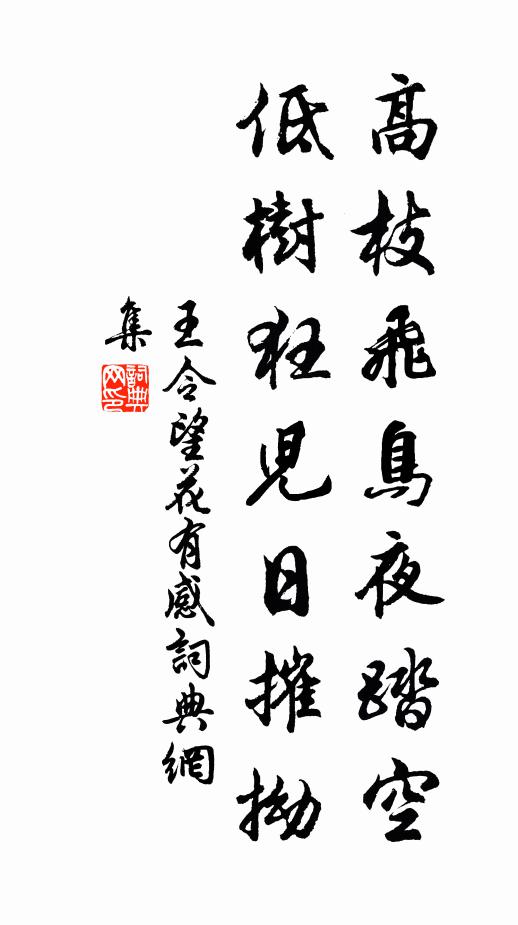 高枝飛鳥夜踏空
低樹狂兒日摧拗
王令望花有感詞典網
集
詞典网印